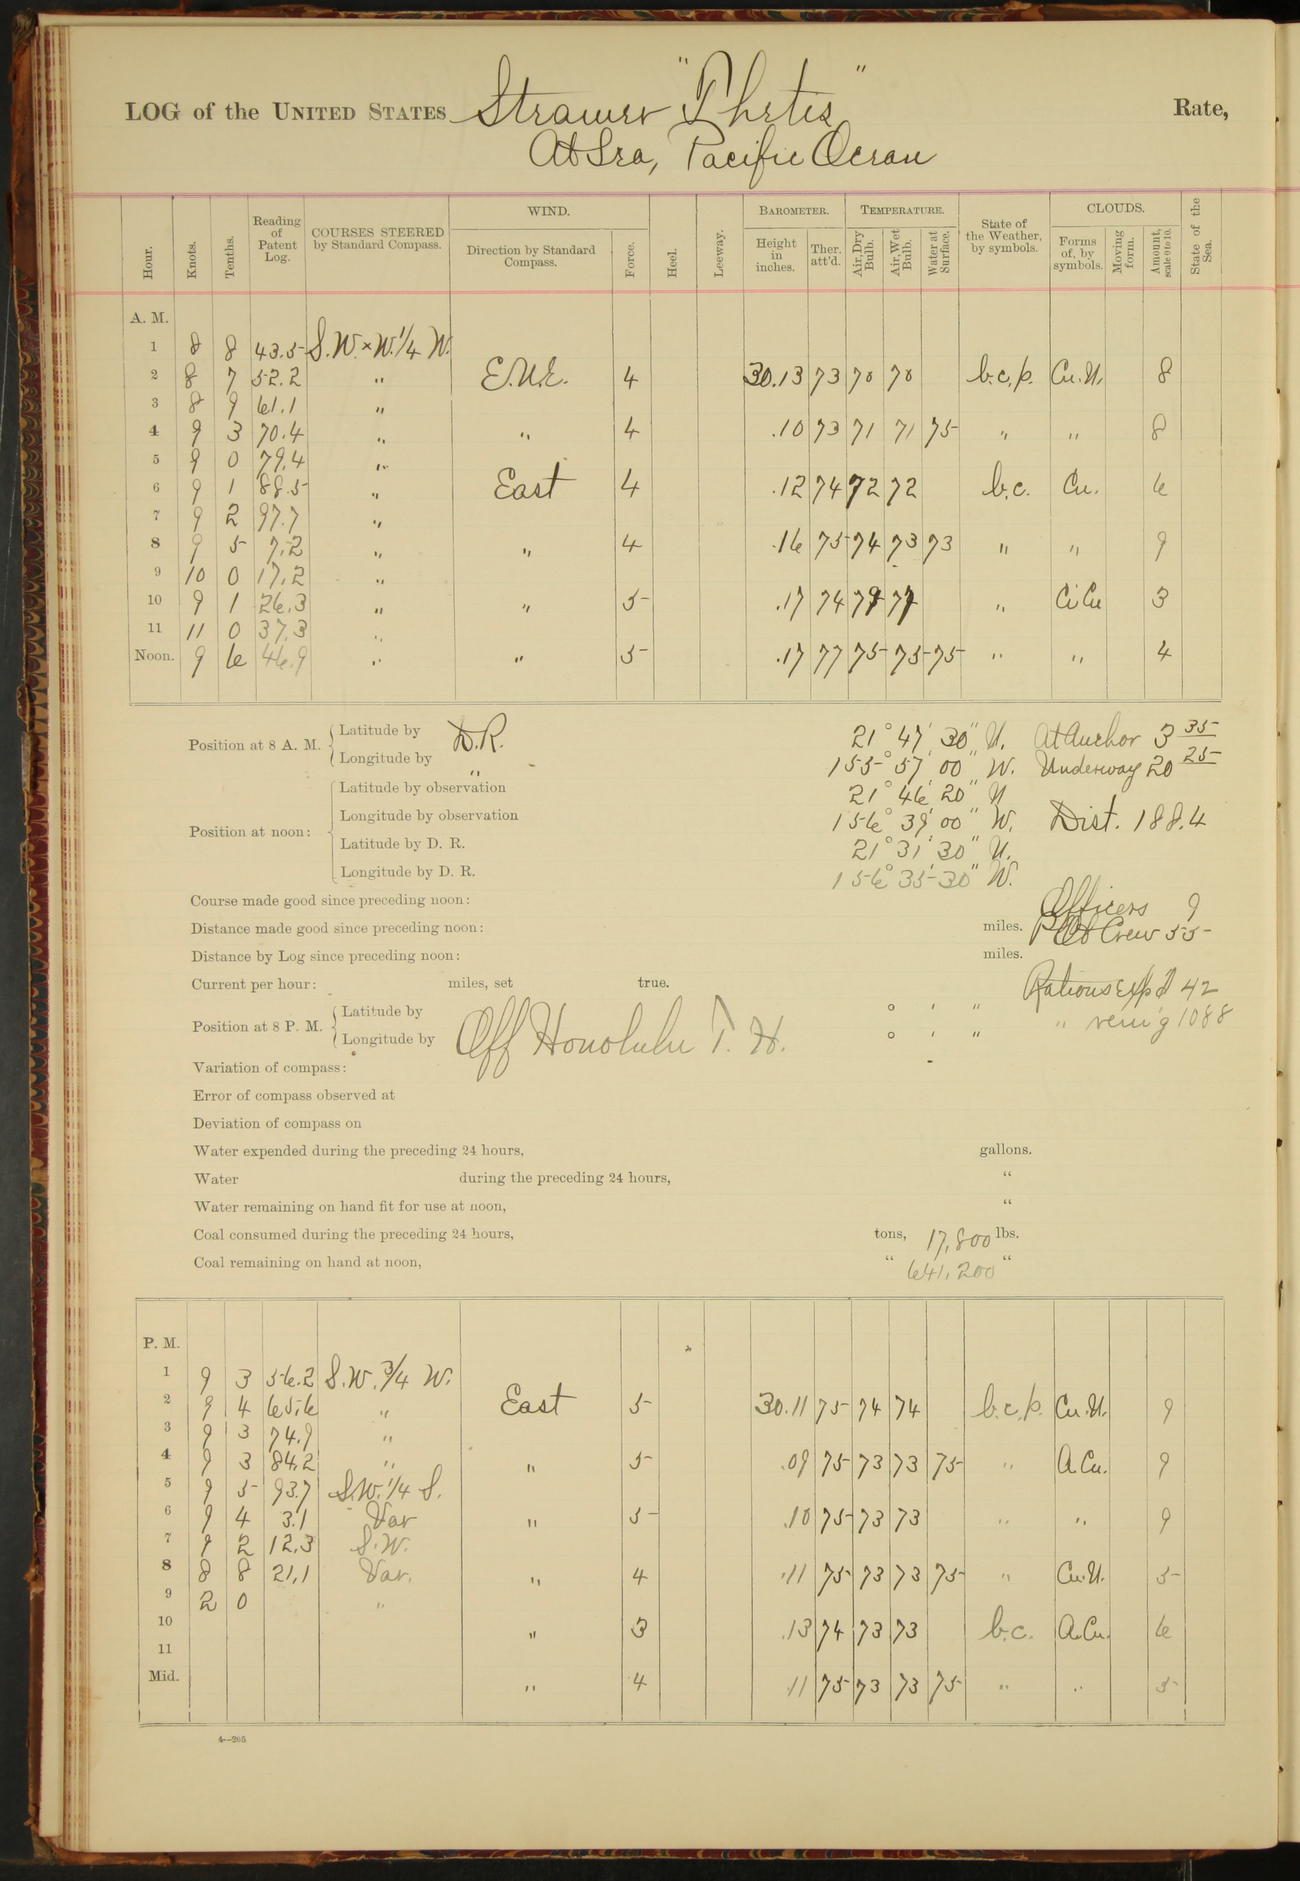 LOG of the UNITED STATES Steamer "Thetis" Rate,
At Sea, Pacific Ocean
Hour. Knots. Tenths. Reading of Patent Log. COURSES STEERED by Standard Compass. WIND. Direction by Standard Compass. Force. Heel. Leeway. BAROMETER. Height in inches. Ther. att'd. TEMPERATURE. Air, Dry Bulb. Air, Wet Bulb. Water at Surface. State of the Weather, by symbols. CLOUDS. Forms of, by symbols. Moving form. Amount, scale 0 to 10. State of the Sea.
A. M.
1 8 8 43.5 S.W.×W.1/4 W.
2 8 7 52.2 " E.N.E. 4 30.13 73 70 70 b.c.p. Cu.N. 8
3 8 9 61.1 "
4 9 3 70.4 " " 4 .10 73 71 71 75 " " 8
5 9 0 79.4 "
6 9 1 88.5 " East 4 .12 74 72 72 b.c. Cu. 6
7 9 2 97.7 "
8 9 5 7.2 " " 4 .16 75 74 73 73 " " 9
9 10 0 17.2 "
10 9 1 26.3 " " 5 .17 74 " Ci Cu 3
11 11 0 37.3 "
Noon. 9 6 46.9 " " 5 .17 77 75 75 75 " " 4
Position at 8 A. M. Latitude by D.R. 21° 47' 30" N. At Anchor 3 35
Longitude by " 155° 57' 00" W. Underway 20 25
Position at noon: Latitude by observation 21° 46' 20" N
Longitude by observation 156° 39' 00" W. Dist. 188.4
Latitude by D. R. 21° 31' 30" N.
Longitude by D. R. 156° 35' 30" W.
Course made good since preceding noon: Officers 9
Distance made good since preceding noon: miles. Crew 55
Distance by Log since preceding noon: miles.
Current per hour: miles, set true. Rations Exp'd 42
Position at 8 P. M. Latitude by ° ' " " rem'g 1088
Longitude by Off Honolulu T. H. ° ' "
Variation of compass:
Error of compass observed at
Deviation of compass on
Water expended during the preceding 24 hours, gallons.
Water during the preceding 24 hours, "
Water remaining on hand fit for use at noon, "
Coal consumed during the preceding 24 hours, tons, 17,800 lbs.
Coal remaining on hand at noon, " 641,200 "
P. M.
1 9 3 56.2 S.W. 3/4 W.
2 9 4 65.6 " East 5 30.11 75 74 74 b.c.p. Cu.N. 9
3 9 3 74.9 "
4 9 3 84.2 " " 5 .09 75 73 73 75 " A.Cu. 9
5 9 5 93.7 S.W. 1/4 S.
6 9 4 3.1 Var " 5 .10 75 73 73 " " 9
7 9 2 12.3 S.W.
8 8 8 21.1 Var. " 4 .11 75 73 73 75 " Cu.N. 5
9 2 0 "
10 " 3 .13 74 73 73 b.c. A.Cu. 6
11
Mid. " 4 .11 75 73 73 75 " " 5
4—205